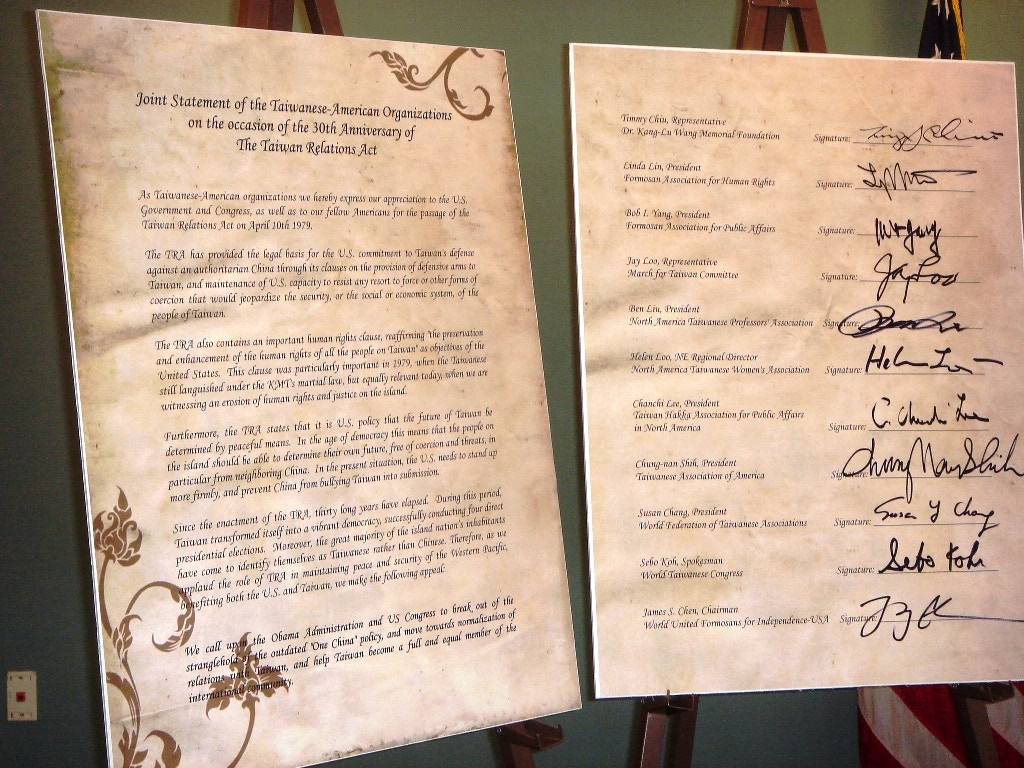 Joint Statement of the Taiwanese-American Organizations
on the occasion of the 30th Anniversary of
The Taiwan Relations Act
As Taiwanese-American organizations we hereby express our appreciation to the U.S.
Government and Congress, as well as to our fellow Americans for the passage of the
Taiwan Relations Act on April 10th 1979.
The TRA has provided the legal basis for the U.S. commitment to Taiwan's defense
against an authoritarian China through its clauses on the provision of defensive arms to
Taiwan, and maintenance of U.S. capacity to resist any resort to force or other forms of
coercion that would jeopardize the security, or the social or economic system, of the
people of Taiwan.
The TRA also contains an important human rights clause, reaffirming "the preservation
and enhancement of the human rights of all the people on Taiwan" as objectives of the
United States. This clause was particularly important in 1979, when the Taiwanese
still languished under the KMT's martial law, but equally relevant today, when we are
witnessing an erosion of human rights and justice on the island.
Furthermore, the TRA states that it is U.S. policy that the future of Taiwan be
determined by peaceful means. In the age of democracy this means that the people on
the island should be able to determine their own future, free of coercion and threats, in
particular from neighboring China. In the present situation, the U.S. needs to stand up
more firmly, and prevent China from bullying Taiwan into submission.
Since the enactment of the TRA, thirty long years have elapsed. During this period,
Taiwan transformed itself into a vibrant democracy, successfully conducting four direct
presidential elections. Moreover, the great majority of the island nation's inhabitants
have come to identify themselves as Taiwanese rather than Chinese. Therefore, as we
applaud the role of TRA in maintaining peace and security of the Western Pacific,
benefiting both the U.S. and Taiwan, we make the following appeal:
We call upon the Obama Administration and US Congress to break out of the
stranglehold of the outdated "One China" policy, and move towards normalization of
relations with Taiwan, and help Taiwan become a full and equal member of the
international community.
Timmy Chiu, Representative
Dr. Kang-Lu Wang Memorial Foundation Signature:
Linda Lin, President
Formosan Association for Human Rights Signature:
Bob I. Yang, President
Formosan Association for Public Affairs Signature:
Jay Loo, Representative
March for Taiwan Committee Signature: Jay Loo
Ben Liu, President
North America Taiwanese Professors' Association Signature:
Helen Loo, NE Regional Director
North America Taiwanese Women's Association Signature: Helen Loo
Chanchi Lee, President
Taiwan Hakka Association for Public Affairs
in North America Signature: C. Chanchi Lee
Chung-nan Shih, President
Taiwanese Association of America Signature: Chung Nan Shih
Susan Chang, President
World Federation of Taiwanese Associations Signature: Susan Y Chang
Sebo Koh, Spokesman
World Taiwanese Congress Signature: Sebo Koh
James S. Chen, Chairman
World United Formosans for Independence-USA Signature: